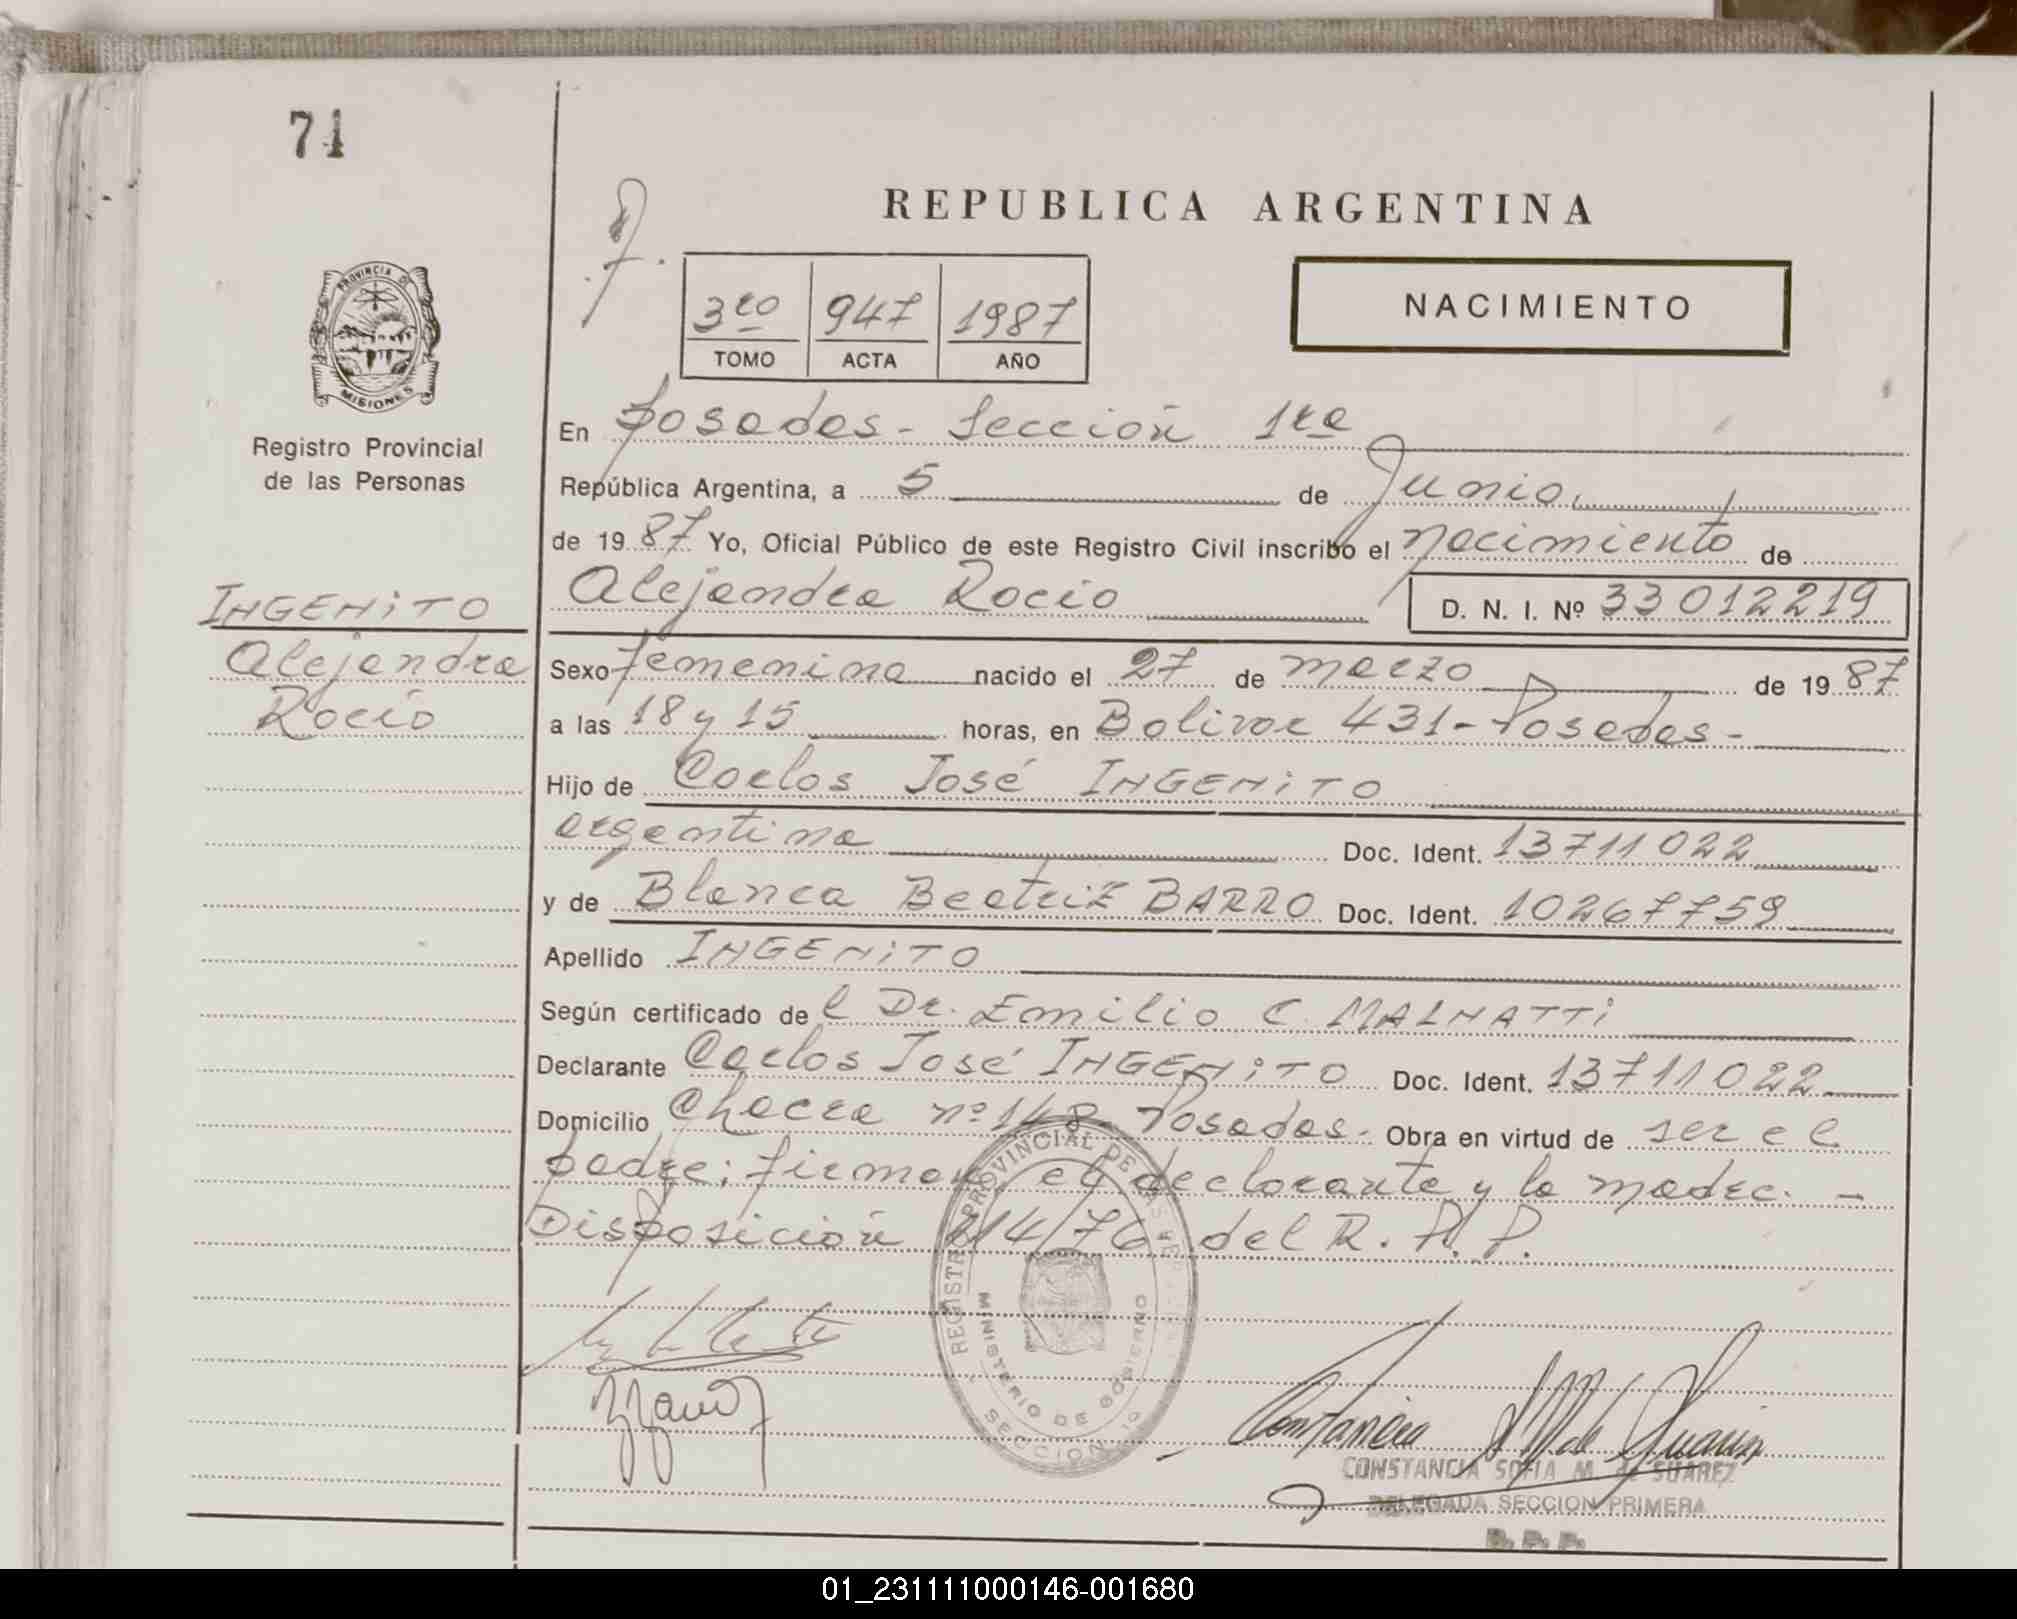 71
REPUBLICA ARGENTINA
PROVINCIA DE
MISIONES
3ro 947 1987
TOMO ACTA AÑO
NACIMIENTO
Registro Provincial
de las Personas
En Posadas - Sección 1ra
República Argentina, a 5 de Junio
de 1987 Yo, Oficial Público de este Registro Civil inscribo el nacimiento de
INGENiTO
Alejandra Rocio D. N. I. Nº 33012219
Alejandra
Rocio
Sexo femenina nacido el 27 de marzo de 1987
a las 18 y 15 horas, en Bolivar 431 - Posadas -
Hijo de Carlos José INGENiTO
argentina Doc. Ident. 13711022
y de Blanca Beatriz BARRO Doc. Ident. 10267759
Apellido INGENiTO
Según certificado del Dr. Emilio C. MALNATTi
Declarante Carlos José INGENiTO Doc. Ident. 13711022
Domicilio Chacra nº 148 - Posadas - Obra en virtud de ser el
padre; firman el declarante y la madre. -
Disposición 214/76 - del R. P. P.
REGISTRO PROVINCIAL DE LAS PERSONAS
MINISTERIO DE GOBIERNO
SECCION 1º
CONSTANCIA SOFIA M. de SUAREZ
DELEGADA SECCION PRIMERA
R. P. P.
01_231111000146-001680